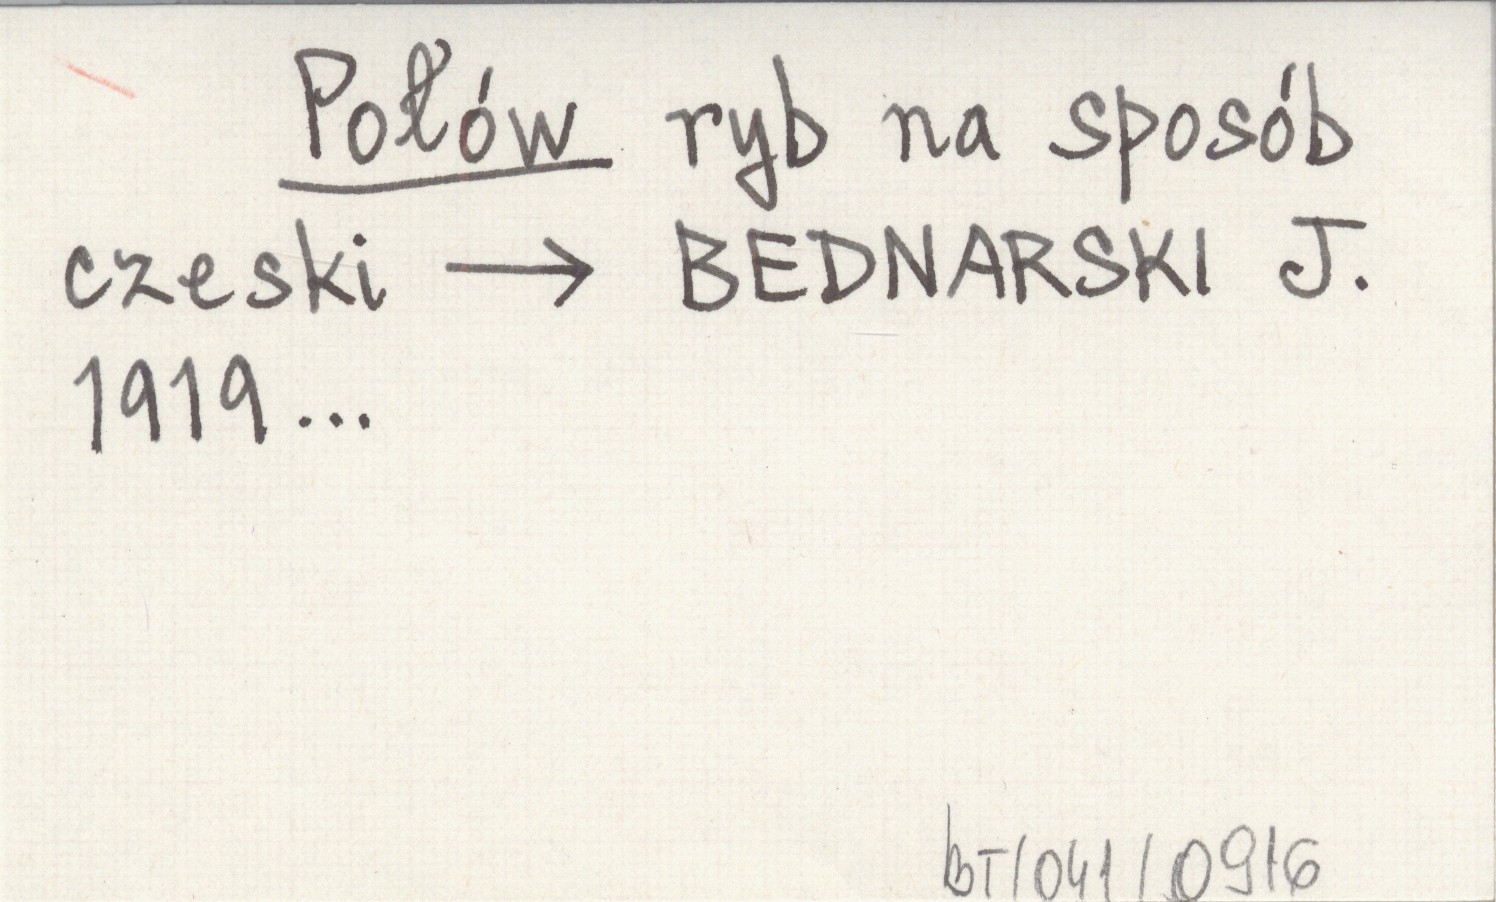 Połów ryb na sposób
czeski → BEDNARSKI J.
1919...
bT/041/0916